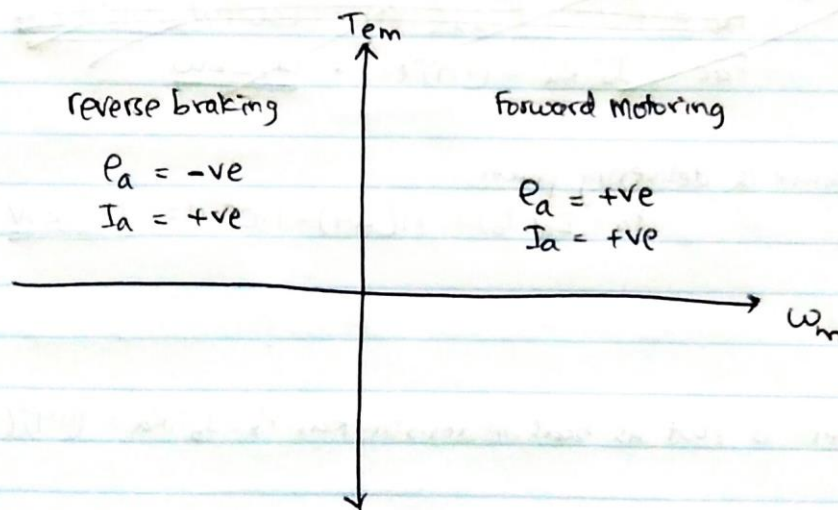 Tem
reverse braking
ea = -ve
Ia = +ve
Forward Motoring
ea = +ve
Ia = +ve
ωm